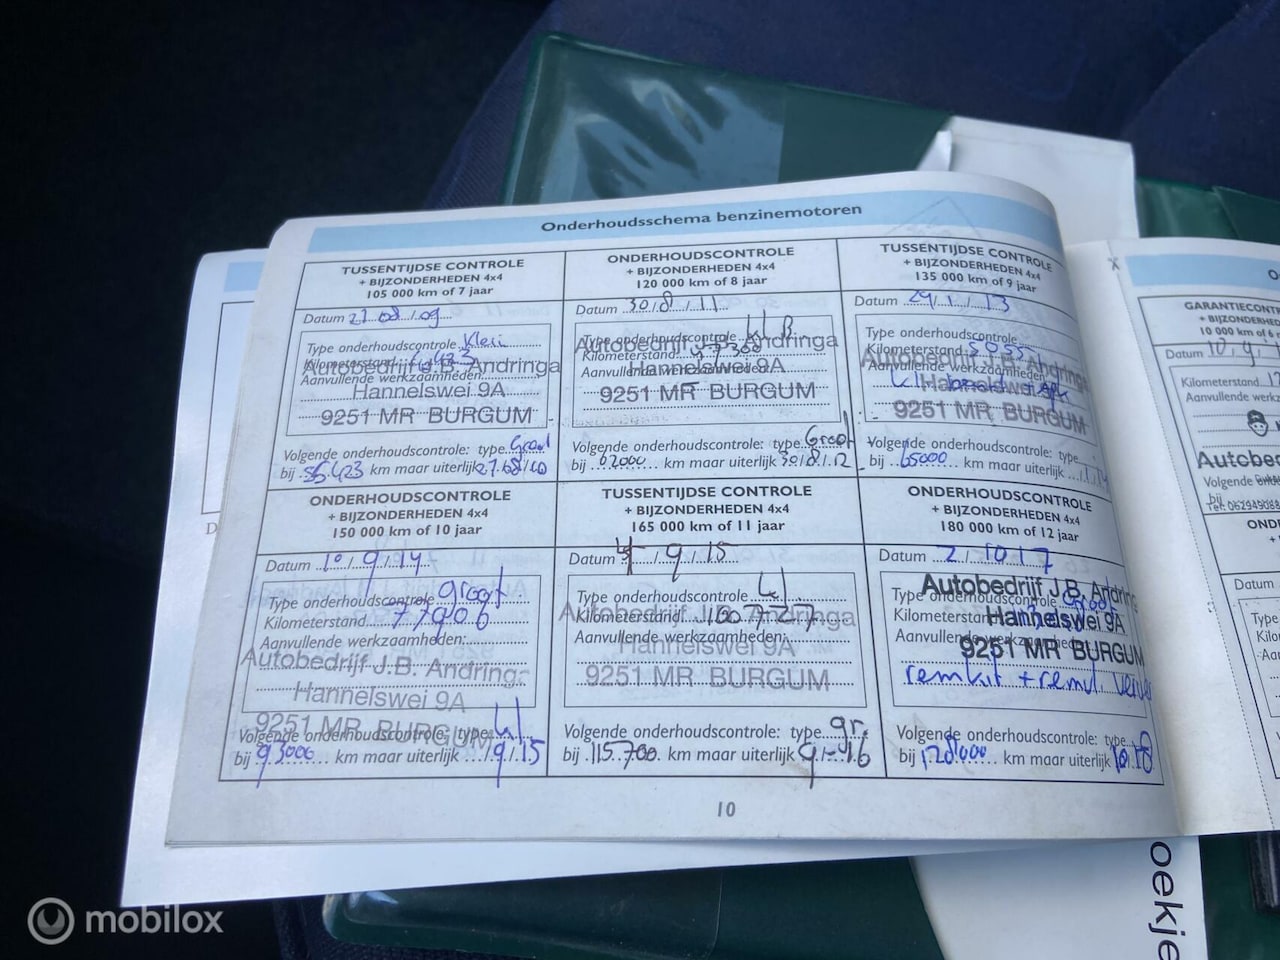 Onderhoudsschema benzinemotoren
TUSSENTIJDSE CONTROLE
+ BIJZONDERHEDEN 4x4
105 000 km of 7 jaar
Datum 27.08/09
Type onderhoudscontrole Klein
Kilometerstand
Aanvullende werkzaamheden:
Autobedrijf J.B. Andringa
Hannelswei 9A
9251 MR BURGUM
Volgende onderhoudscontrole: type Groot
bij 55.423 km maar uiterlijk 27.08/10
ONDERHOUDSCONTROLE
+ BIJZONDERHEDEN 4x4
120 000 km of 8 jaar
Datum 30/8/11
Type onderhoudscontrole
Kilometerstand 47300
Aanvullende werkzaamheden:
Autobedrijf J.B. Andringa
Hannelswei 9A
9251 MR BURGUM
Volgende onderhoudscontrole: type Groot
bij 62000 km maar uiterlijk 30/8/12
TUSSENTIJDSE CONTROLE
+ BIJZONDERHEDEN 4x4
135 000 km of 9 jaar
Datum 29/1/13
Type onderhoudscontrole
Kilometerstand
Aanvullende werkzaamheden:
Autobedrijf J.B. Andringa
Hannelswei 9A
9251 MR BURGUM
Volgende onderhoudscontrole: type
bij 65000 km maar uiterlijk
ONDERHOUDSCONTROLE
+ BIJZONDERHEDEN 4x4
150 000 km of 10 jaar
Datum 10/9/14
Type onderhoudscontrole groot
Kilometerstand 77906
Aanvullende werkzaamheden:
Autobedrijf J.B. Andringa
Hannelswei 9A
9251 MR BURGUM
Volgende onderhoudscontrole: type kl
bij 93000 km maar uiterlijk /9/15
TUSSENTIJDSE CONTROLE
+ BIJZONDERHEDEN 4x4
165 000 km of 11 jaar
Datum 4/9/15
Type onderhoudscontrole kl.
Kilometerstand 100727
Aanvullende werkzaamheden:
Autobedrijf J.B. Andringa
Hannelswei 9A
9251 MR BURGUM
Volgende onderhoudscontrole: type gr.
bij 115.700 km maar uiterlijk 9-16
ONDERHOUDSCONTROLE
+ BIJZONDERHEDEN 4x4
180 000 km of 12 jaar
Datum 2/10/17
Type onderhoudscontrole groot
Kilometerstand
Aanvullende werkzaamheden
Autobedrijf J.B. Andring
Hannelswei 9A
9251 MR BURGUM
remkit + remvl.
Volgende onderhoudscontrole: type
bij 128000 km maar uiterlijk 10/18
10
GARANTIECONT
+ BIJZONDER
10 000 km of 6
Datum 10/9/1
Kilometerstand
Aanvullende werkz
Autobed
Volgende
bij
ONDE
Datum
Type
Kilo
oekje
mobilox